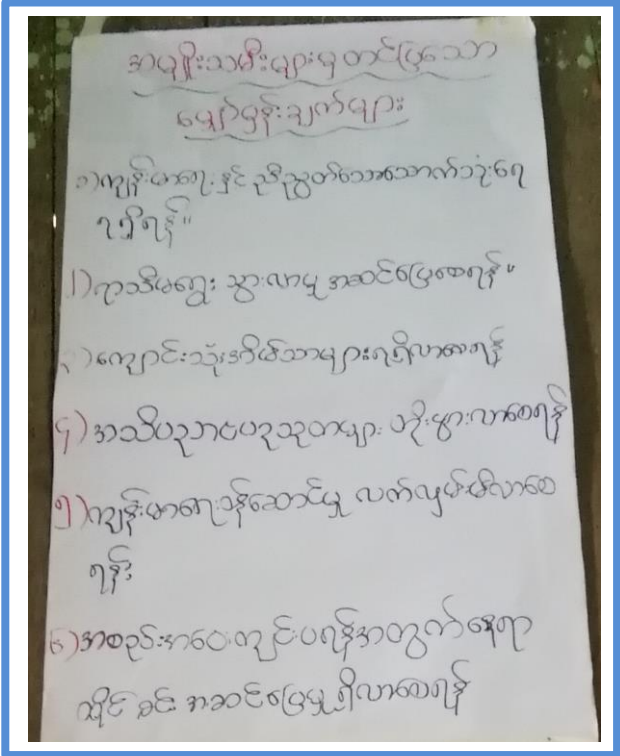 အမျိုးသမီးများမှတင်ပြသော
မျှော်မှန်းချက်များ
၁)ကျန်းမာရေးနှင့် ညီညွတ်သောသောက်သုံးရေ
ရရှိရန်။
၂)ရာသီမရွေး သွားလာမှု အဆင်ပြေစေရန်။
၃)ကျောင်းသုံးအိမ်သာများရရှိလာစေရန်
၄)အသိပညာဗဟုသုတများ တိုးပွားလာစေရန်
၅)ကျန်းမာရေးဝန်ဆောင်မှု လက်လှမ်းမီလာစေ
ရန်း
၆)အစည်းအဝေးကျင်းပရန်အတွက်နေရာ
ထိုင်ခင်း အဆင်ပြေမှုရှိလာစေရန်